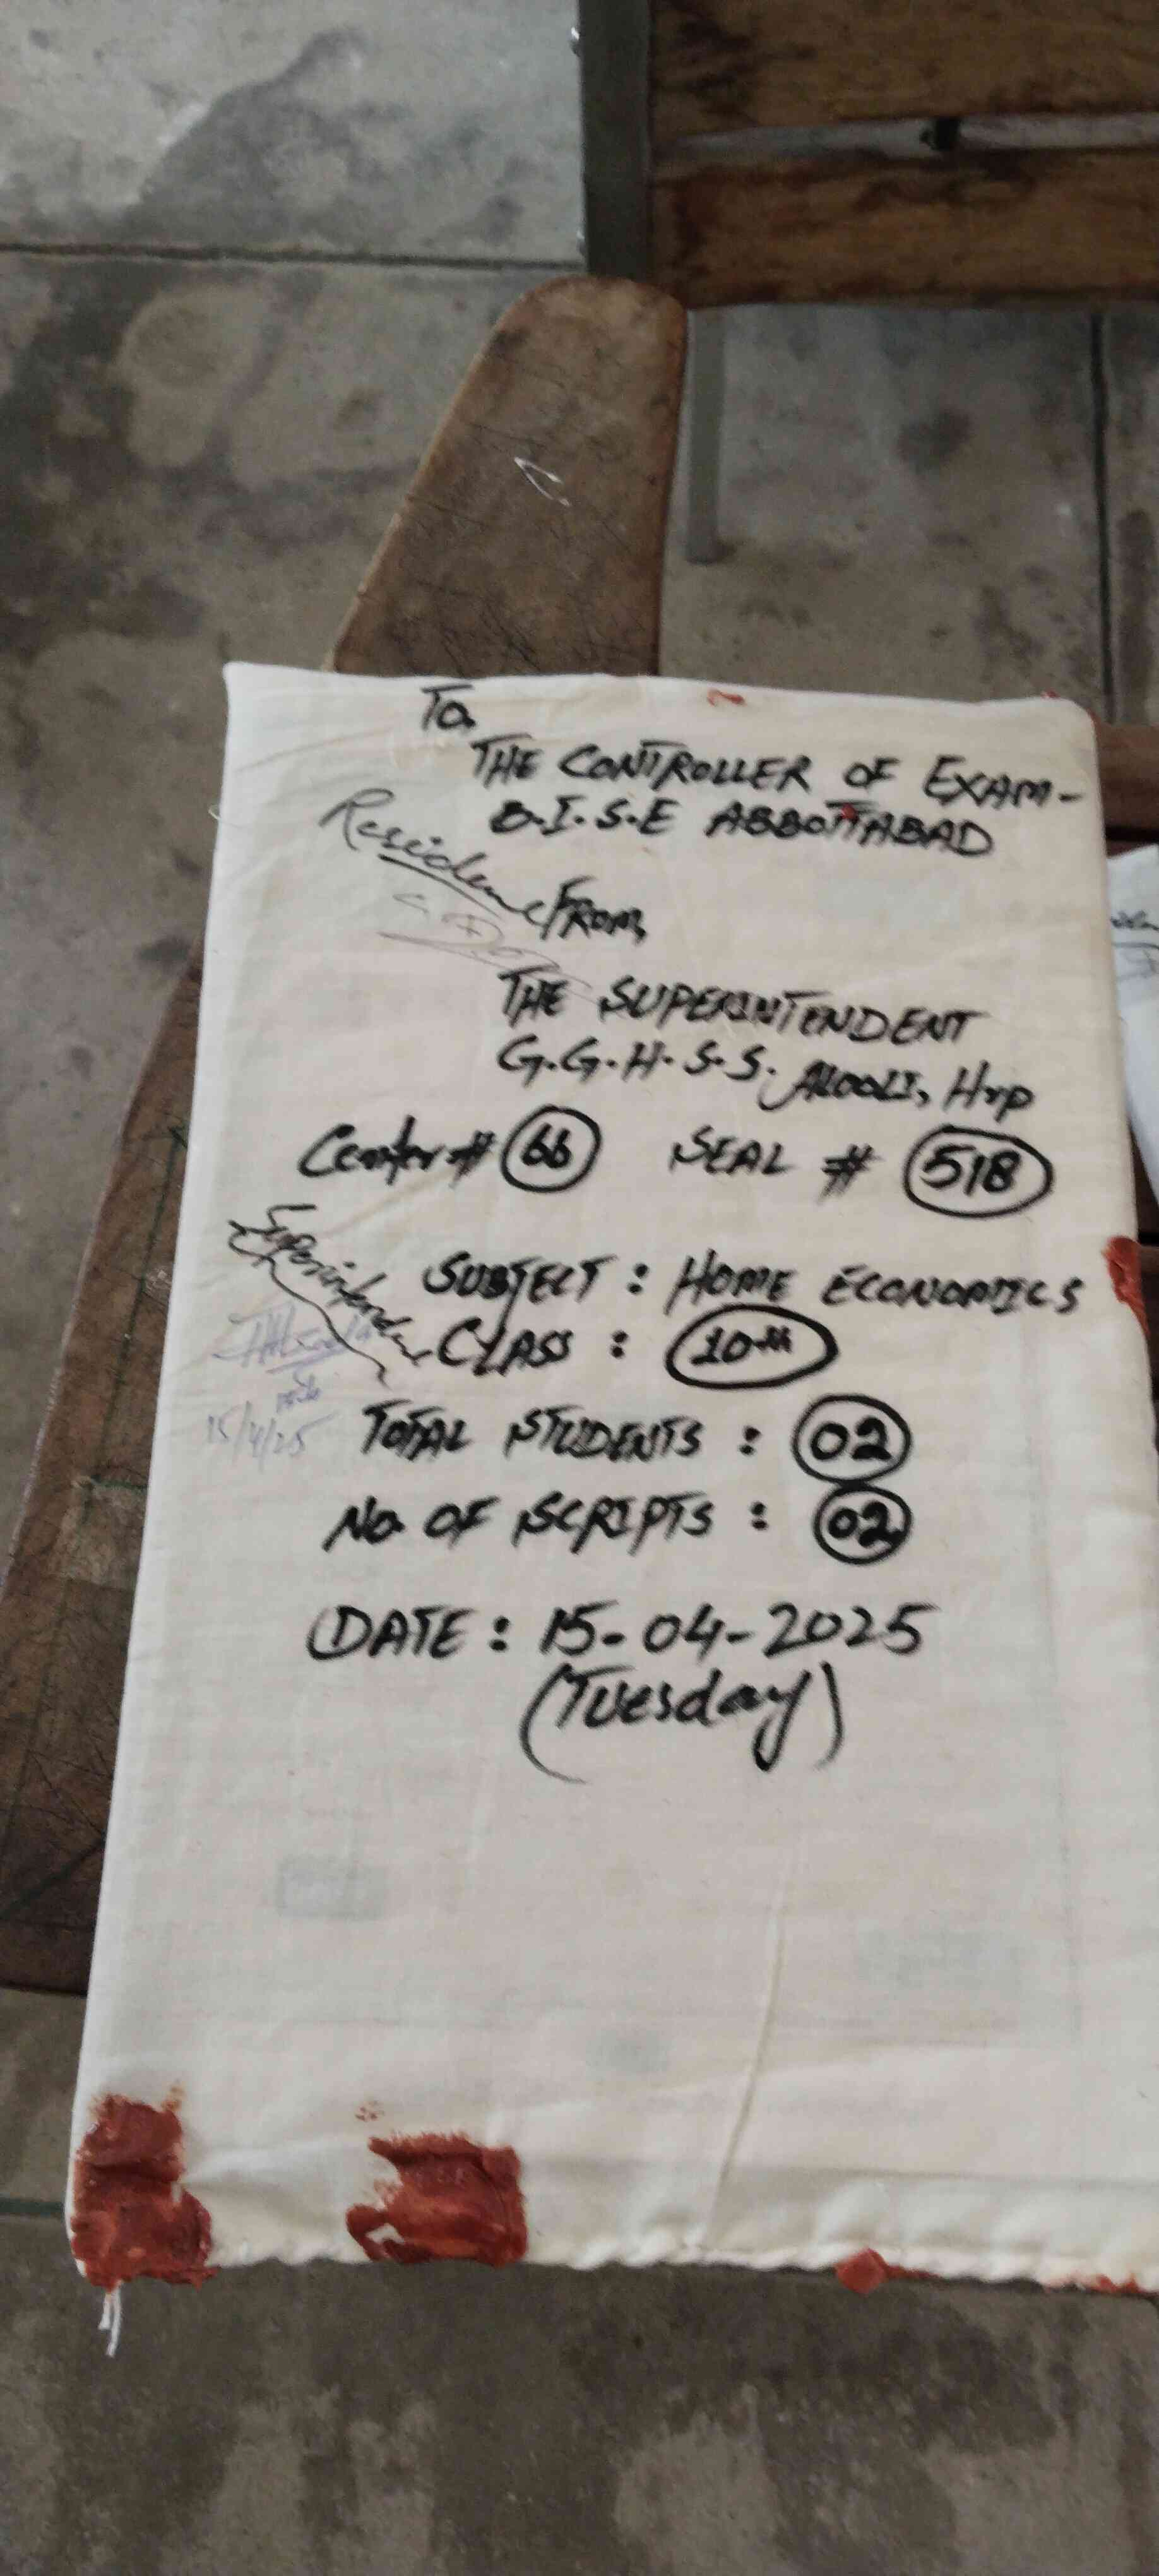 To,
THE CONTROLLER OF EXAM-
B.I.S.E ABBOTTABAD
Resident
FROM,
THE SUPERINTENDENT
G.G.H.S.S. ALOOLI, Hrp
Center # 66 SEAL # 518
Superintendent
SUBJECT : HOME ECONOMICS
CLASS : 10th
15/4/25
TOTAL STUDENTS : 02
No. OF SCRIPTS : 02
DATE : 15-04-2025
(Tuesday)